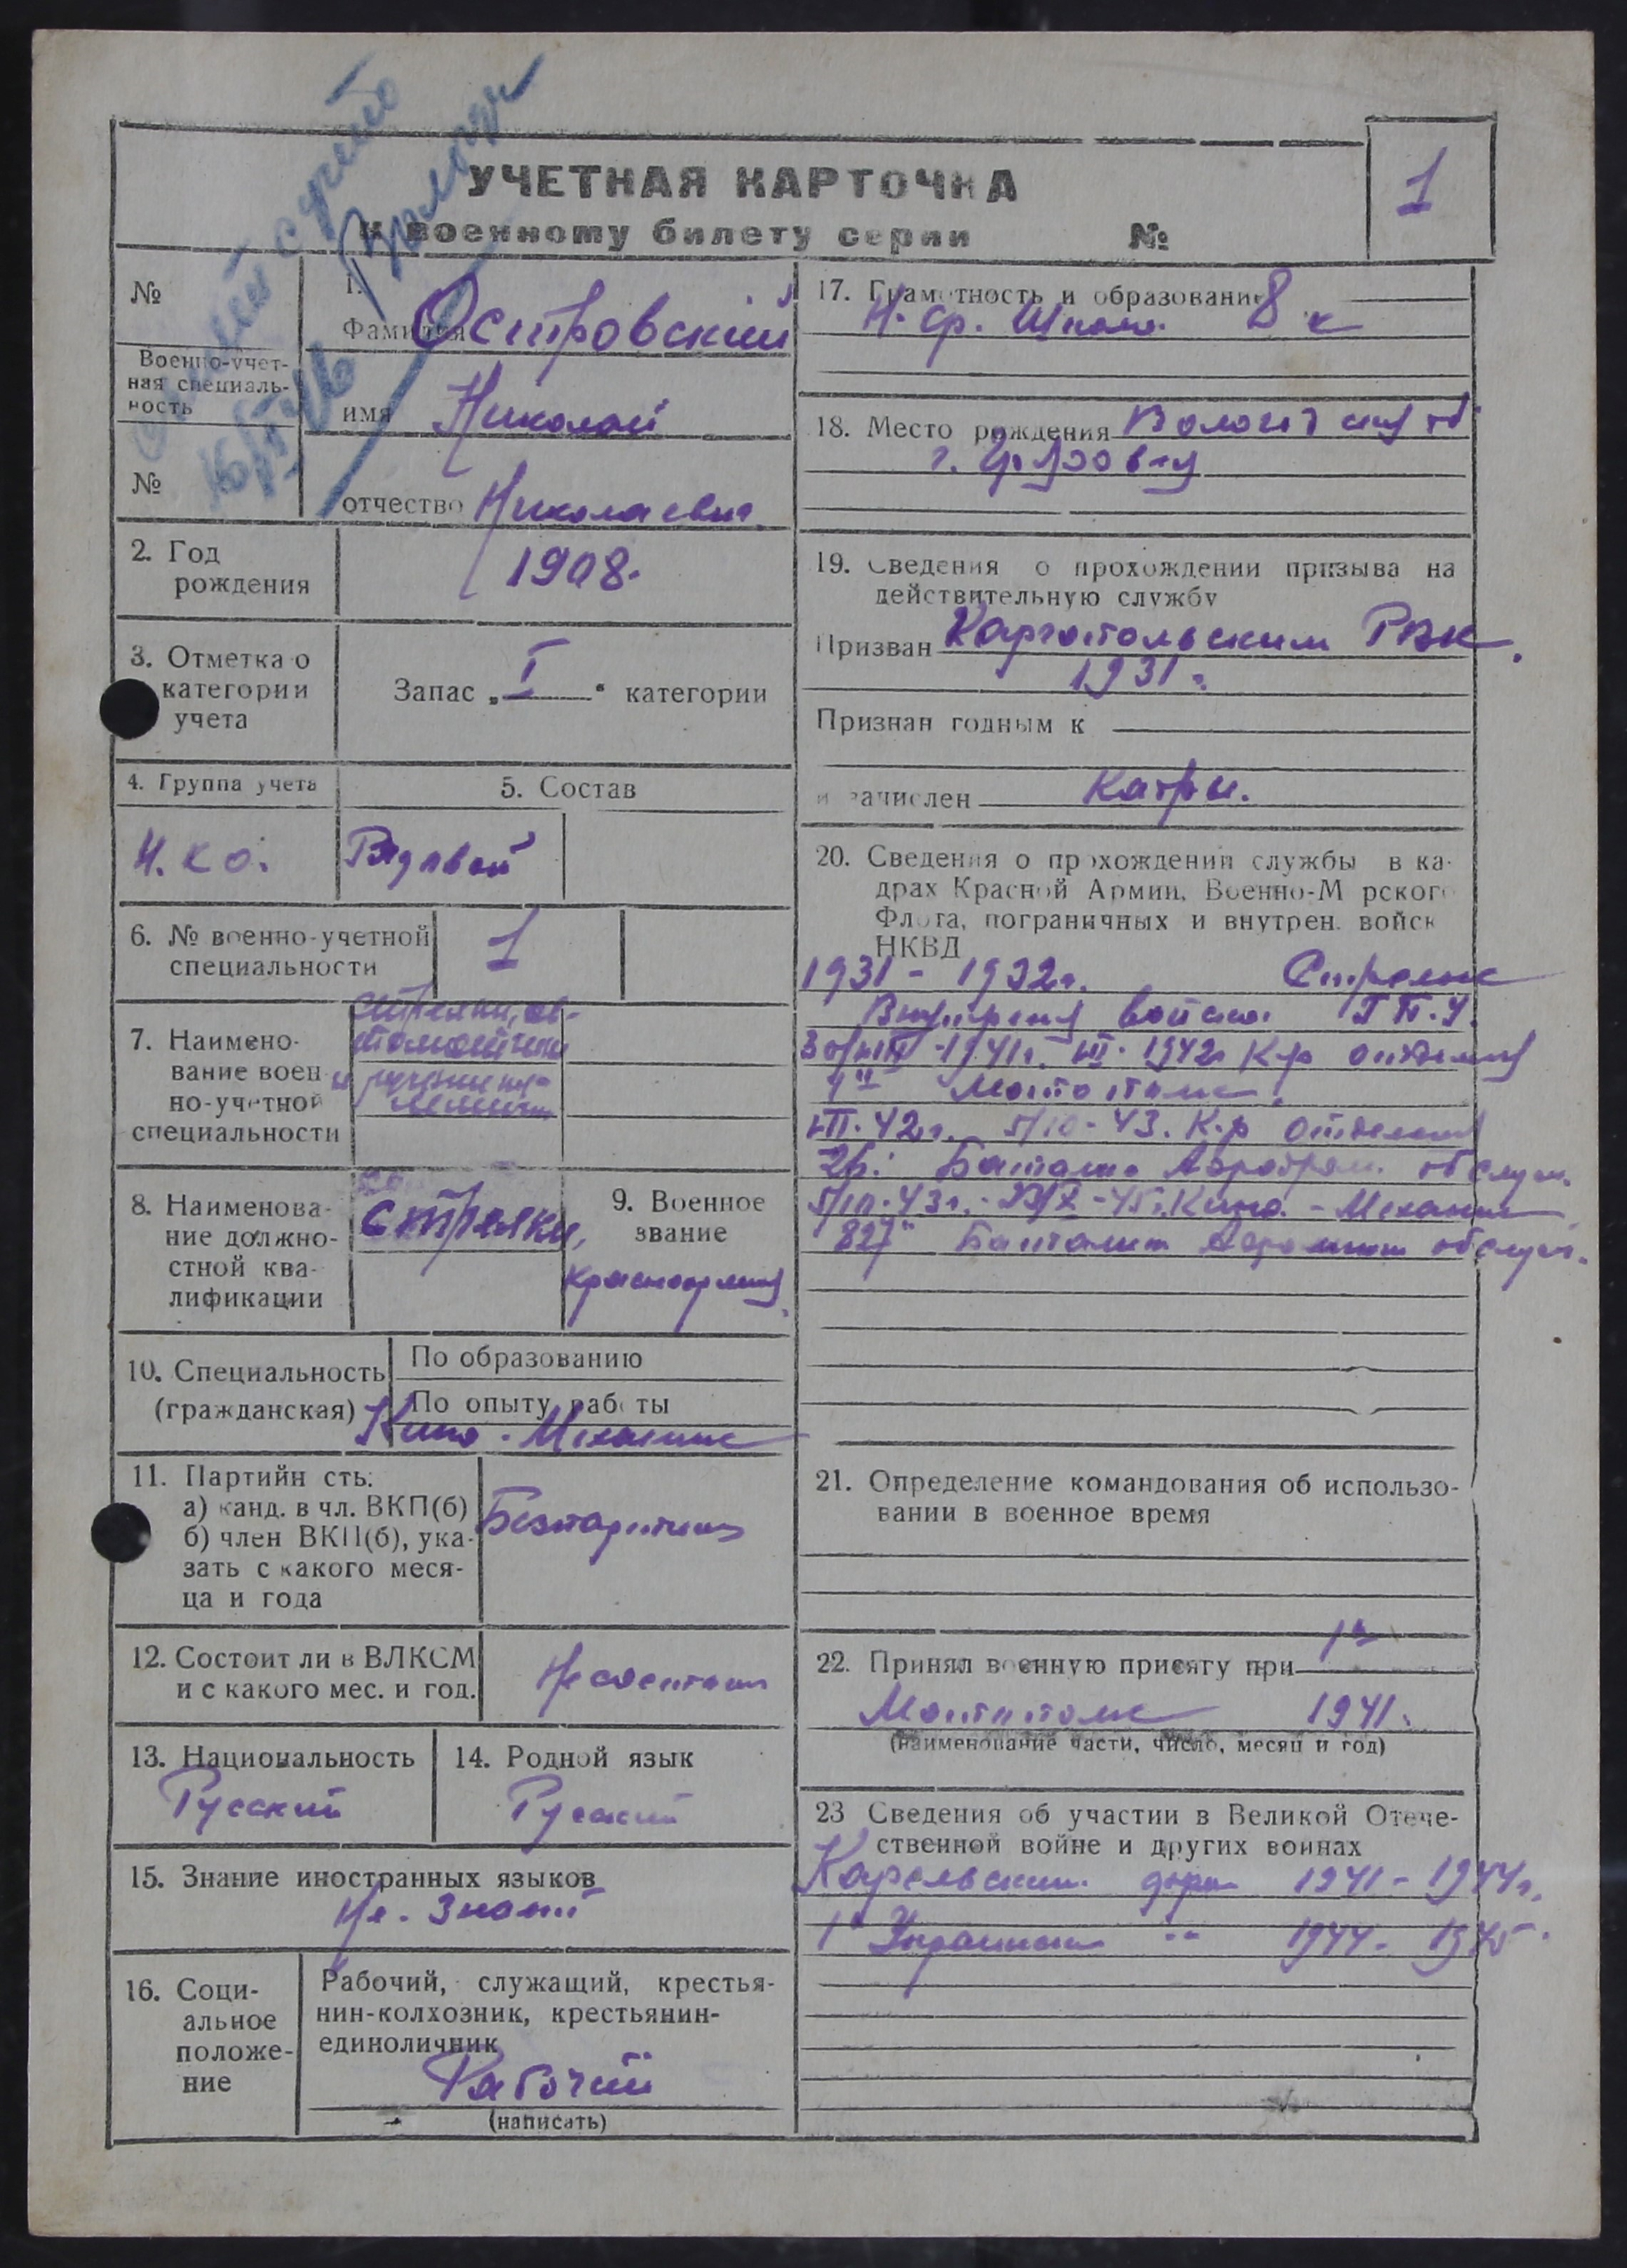 УЧЕТНАЯ КАРТОЧКА
к военному билету серии №
1
№
Военно-учет-
ная специаль-
ность
№
1.
Фамилия Островский
имя Николай
отчество Николаевич
2. Год
рождения
1908.
3. Отметка о
категории
учета
Запас „I“ категории
4. Группа учета
5. Состав
Н.К.О.
Рядовой
6. № военно-учетной
специальности
1
7. Наимено-
вание воен
но-учетной
специальности
8. Наименова-
ние должно-
стной ква-
лификации
стрелки,
9. Военное
звание
красноармеец
10. Специальность
(гражданская)
По образованию
По опыту работы
Кино-Механик
11. Партийн сть:
а) канд. в чл. ВКП(б)
б) член ВКП(б), ука-
зать с какого меся-
ца и года
Безпартийн
12. Состоит ли в ВЛКСМ
и с какого мес. и год.
Не состоит
13. Национальность
Русский
14. Родной язык
Русский
15. Знание иностранных языков
Не. Знает
16. Соци-
альное
положе-
ние
Рабочий, служащий, крестья-
нин-колхозник, крестьянин-
единоличник
Рабочий
(написать)
17. Грамотность и образование 8 к
Н. Ср. Школа
18. Место рождения
г.
19. Сведения о прохождении призыва на
действительную службу
Призван Каргопольским РВК.
1931 г.
Признан годным к
и зачислен
20. Сведения о прохождении службы в ка-
драх Красной Армии, Военно-М рского
Флота, пограничных и внутрен. войск
НКВД
1931 - 1932 г. Стрелок
войска Г.П.У.
1941 г. 1942 К-р
42 г. 5/10-43. К-р отделения
Батальон обслуж.
5/10-43 г. 45 г. Кино-Механик
827й Батальон обслуж.
21. Определение командования об использо-
вании в военное время
22. Принял военную присягу при 1й
1941.
(наименование части, число, месяц и год)
23 Сведения об участии в Великой Отече-
ственной войне и других воинах
Карельский 1941-1944 г.
1й Украинский -"- 1944-1945.